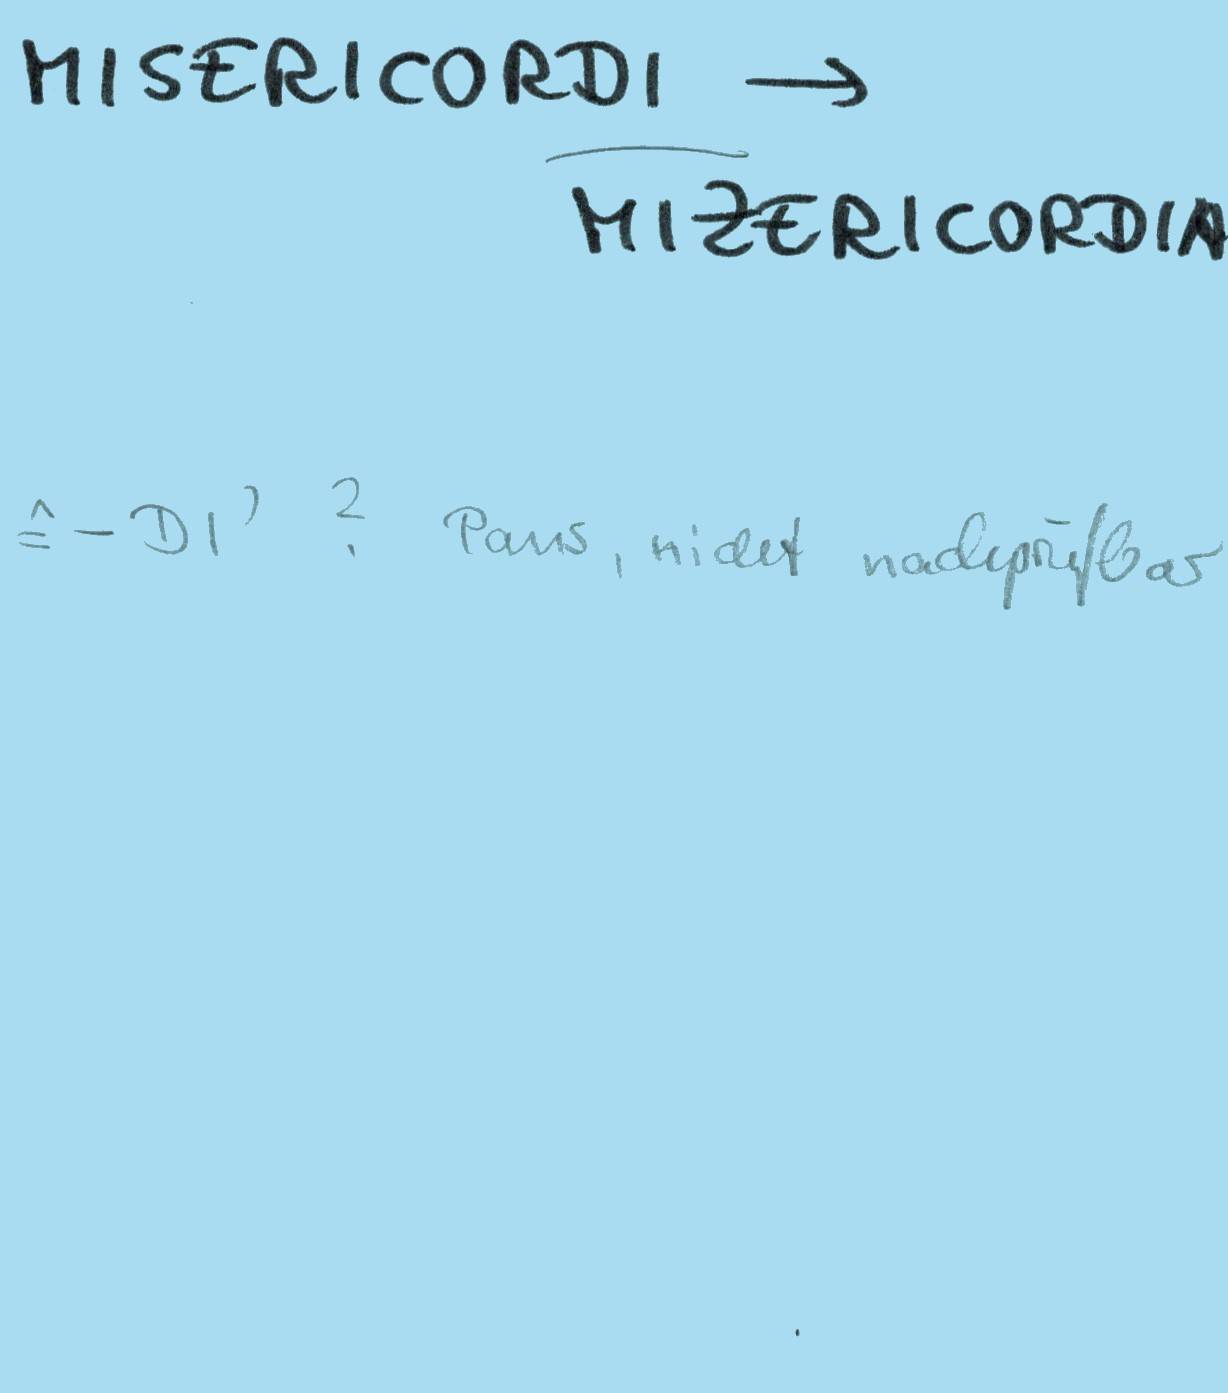 MISERICORDI →
MIZERICORDIA
≙ - DI' ? Paus, nicht nachprüfbar